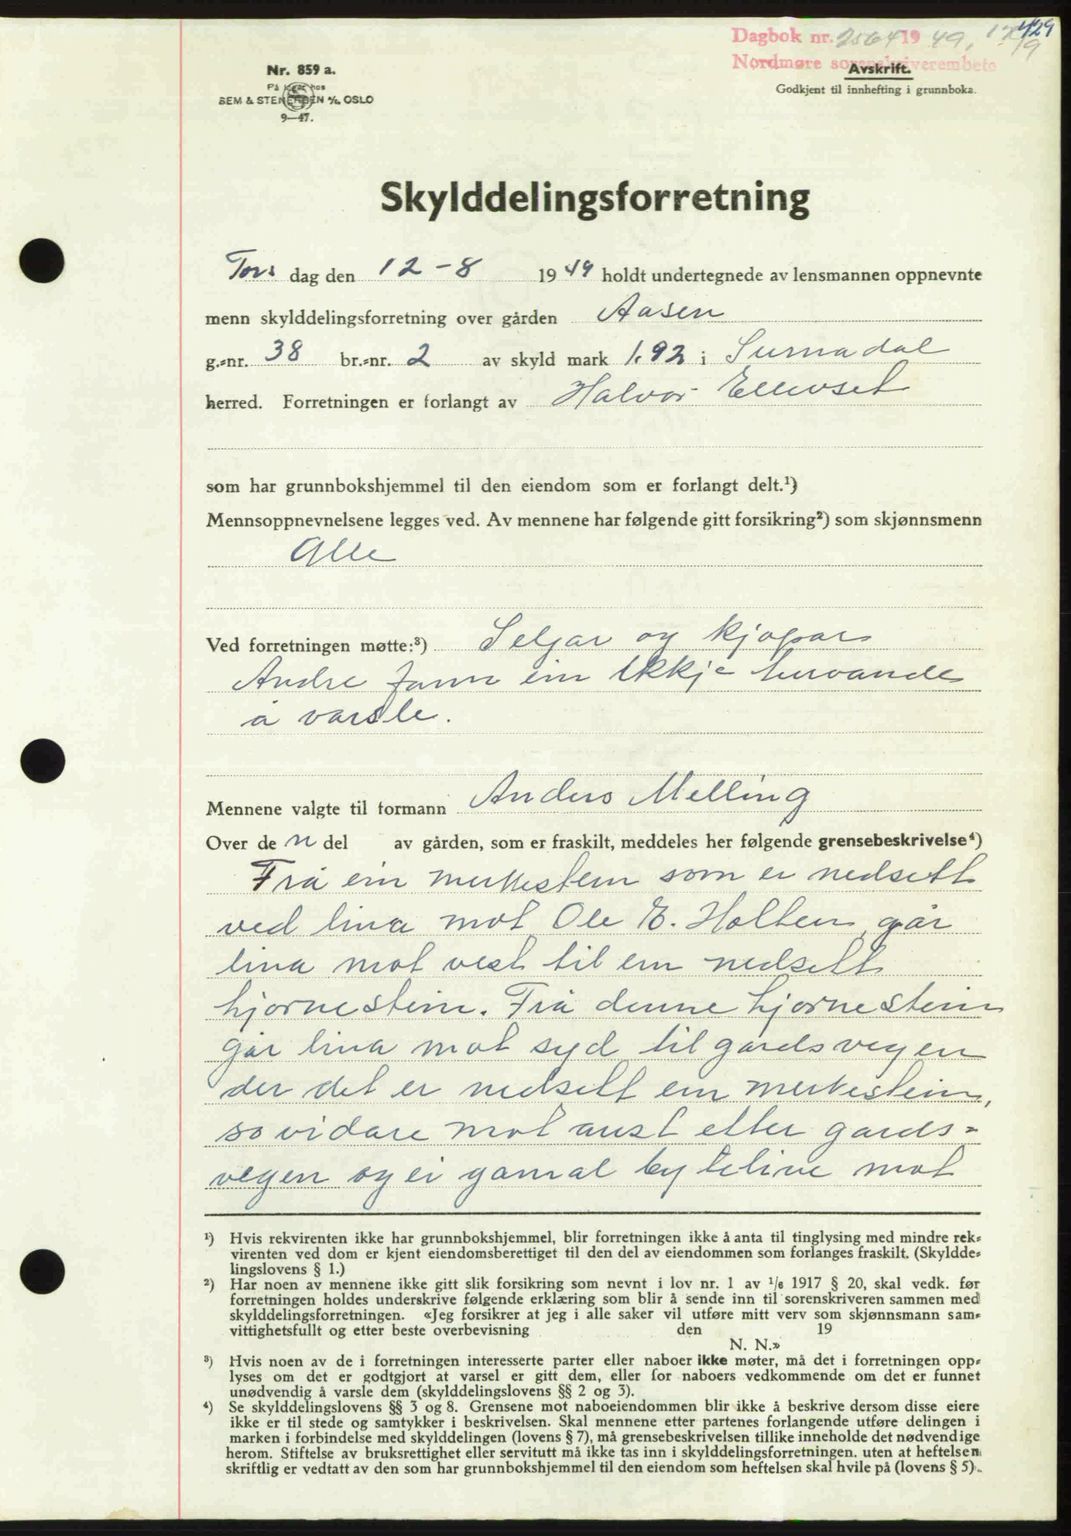 429
Dagbok nr. 2564 19 49, 17/9
Nordmøre sorenskriverembete
Nr. 859 a.
På lager hos
SEM & STENERSEN A/S, OSLO
9—47.
Avskrift.
Godkjent til innhefting i grunnboka.
Skylddelingsforretning
Tors dag den 12-8 1949 holdt undertegnede av lensmannen oppnevnte
menn skylddelingsforretning over gården Aasen
g.=nr. 38 br.=nr. 2 av skyld mark 1.92 i Surnadal
herred. Forretningen er forlangt av Halvor Ellevset
som har grunnbokshjemmel til den eiendom som er forlangt delt.¹)
Mennsoppnevnelsene legges ved. Av mennene har følgende gitt forsikring²) som skjønnsmenn
Alle
Ved forretningen møtte:³) Seljar og kjøpar
Andre fann ein ikkje turvande
å varsle.
Mennene valgte til formann Anders Melling
Over de n del av gården, som er fraskilt, meddeles her følgende grensebeskrivelse⁴)
Frå ein merkestein som er nedsett
ved lina mot Ole E. Holten går
lina mot vest til ein nedsett
hjørnestein. Frå denne hjørnestein
går lina mot syd til gardsvegen
der det er nedsett ein merkestein,
so vidare mot aust etter gards=
vegen og ei gamal byteline mot
¹) Hvis rekvirenten ikke har grunnbokshjemmel, blir forretningen ikke å anta til tinglysing med mindre rek=
virenten ved dom er kjent eiendomsberettiget til den del av eiendommen som forlanges fraskilt. (Skyldde=
lingslovens § 1.)
²) Har noen av mennene ikke gitt slik forsikring som nevnt i lov nr. 1 av 1/6 1917 § 20, skal vedk. før
forretningen holdes underskrive følgende erklæring som blir å sende inn til sorenskriveren sammen med
skylddelingsforretningen. «Jeg forsikrer at jeg i alle saker vil utføre mitt verv som skjønnsmann sam=
vittighetsfullt og etter beste overbevisning den 19
N. N.»
³) Hvis noen av de i forretningen interesserte parter eller naboer ikke møter, må det i forretningen opp=
lyses om det er godtgjort at varsel er gitt dem, eller for naboers vedkommende om det er funnet
unødvendig å varsle dem (skylddelingslovens §§ 2 og 3).
⁴) Se skylddelingslovens §§ 3 og 8. Grensene mot naboeiendommen blir ikke å beskrive dersom disse eiere
ikke er til stede og samtykker i beskrivelsen. Skal mennene etter partenes forlangende utføre delingen i
marken i forbindelse med skylddelingen (lovens § 7), må grensebeskrivelsen tillike inneholde det nødvendige
herom. Stiftelse av bruksrettighet eller servitutt må ikke tas inn i skylddelingsforretningen, uten at heftelsen
skriftlig er vedtatt av den som har grunnbokshjemmel til den eiendom som heftelsen skal hvile på (lovens § 5).